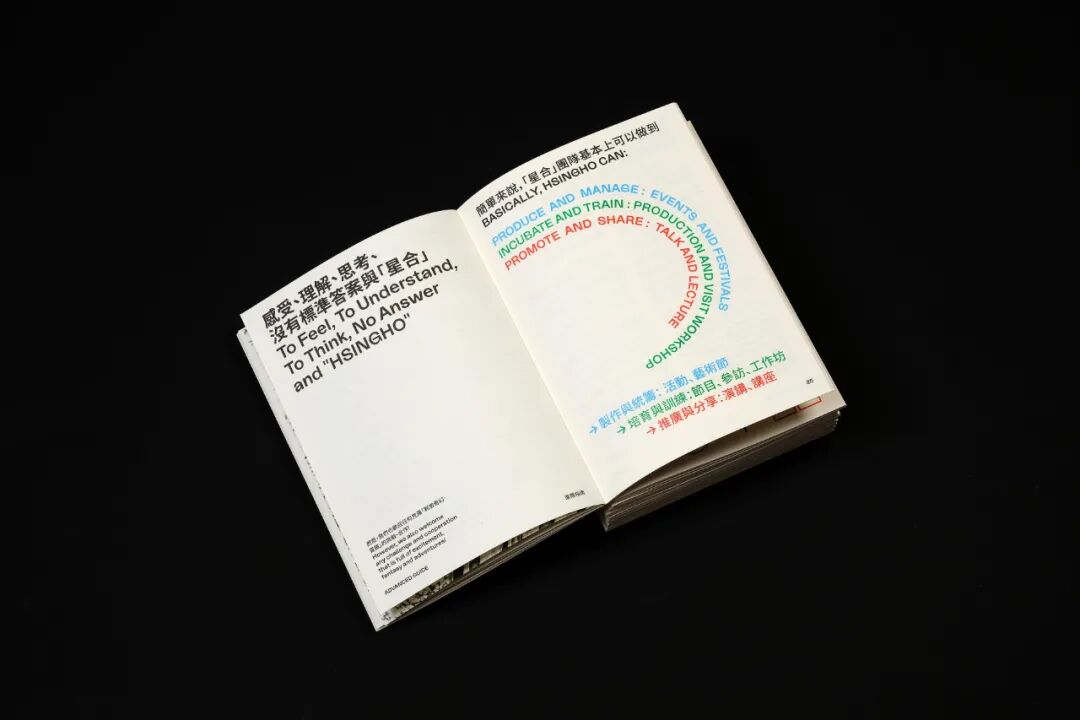 感受、理解、思考、
沒有標準答案與「星合」
To Feel, To Understand,
To Think, No Answer
and "HSINGHO"
However, we also welcome
any challenge and cooperation
that is full of excitement,
fantasy and adventures!
ADVANCED GUIDE
進階指南
簡單來說，「星合」團隊基本上可以做到
BASICALLY, HSINGHO CAN:
PRODUCE AND MANAGE: EVENTS AND FESTIVALS
INCUBATE AND TRAIN: PRODUCTION AND VISIT WORKSHOP
PROMOTE AND SHARE: TALK AND LECTURE
→ 製作與統籌：活動、藝術節
→ 培育與訓練：節目、參訪、工作坊
→ 推廣與分享：演講、講座